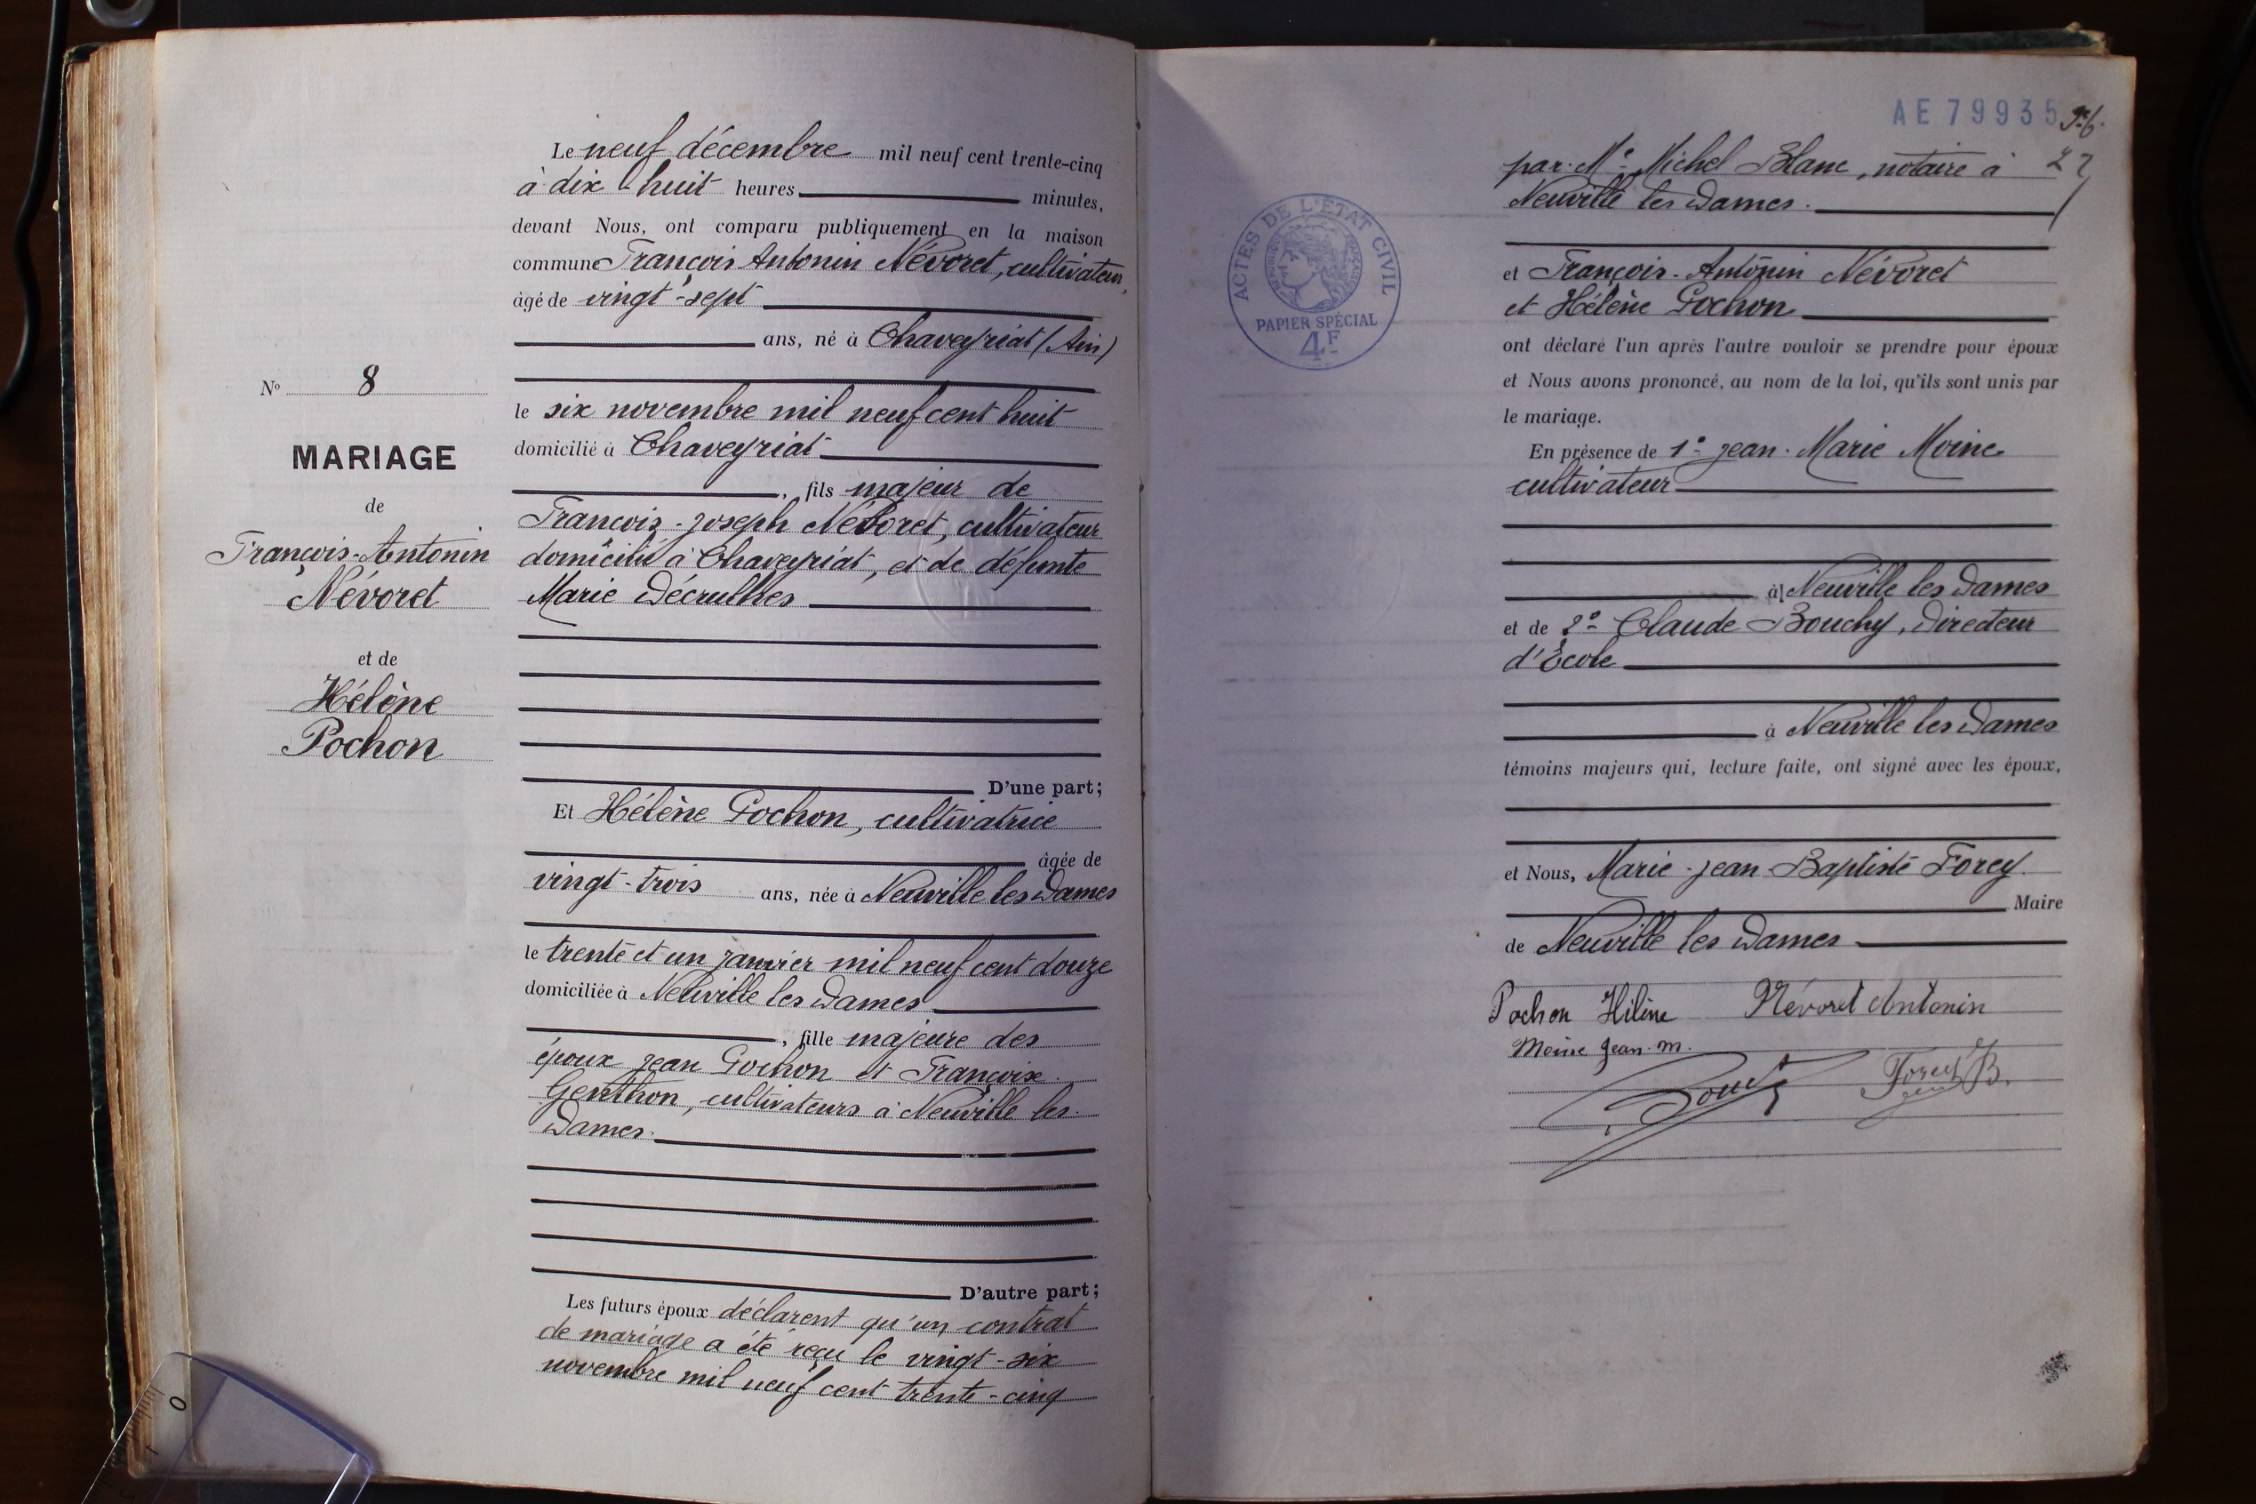 Le neuf décembre mil neuf cent trente-cinq
à dix-huit heures minutes,
devant Nous, ont comparu publiquement en la maison
commune François Antonin Névoret, cultivateur,
âgé de vingt-sept
ans, né à Chaveyriat (Ain)
le six novembre mil neuf cent huit
domicilié à Chaveyriat
, fils majeur de
François-Joseph Névoret, cultivateur
domicilié à Chaveyriat, et de défunte
Marie
D'une part;
Et Hélène Pochon, cultivatrice
âgée de
vingt-trois ans, née à Neuville les Dames
le trente et un janvier mil neuf cent douze
domiciliée à Neuville les Dames
, fille majeure des
époux Jean Pochon et Françoise
Genthon, cultivateurs à Neuville les
Dames.
D'autre part;
Les futurs époux déclarent qu'un contrat
de mariage a été reçu le vingt-six
novembre mil neuf cent trente-cinq
No 8
MARIAGE
de
François-Antonin
Névoret
et de
Hélène
Pochon
AE 79935
par Me Michel Blanc, notaire à
Neuville les Dames.
et François-Antonin Névoret
et Hélène Pochon
ont déclaré l'un après l'autre vouloir se prendre pour époux
et Nous avons prononcé, au nom de la loi, qu'ils sont unis par
le mariage.
En présence de 1° Jean-Marie Moine
cultivateur
à Neuville les Dames
et de 2° Claude Bouchy, Directeur
d'École
à Neuville les Dames
témoins majeurs qui, lecture faite, ont signé avec les époux,
et Nous, Marie-Jean-Baptiste Forey
Maire
de Neuville les Dames
Pochon Hélène Névoret Antonin
Moine Jean. M.
ACTES DE L'ÉTAT CIVIL
PAPIER SPÉCIAL
4F